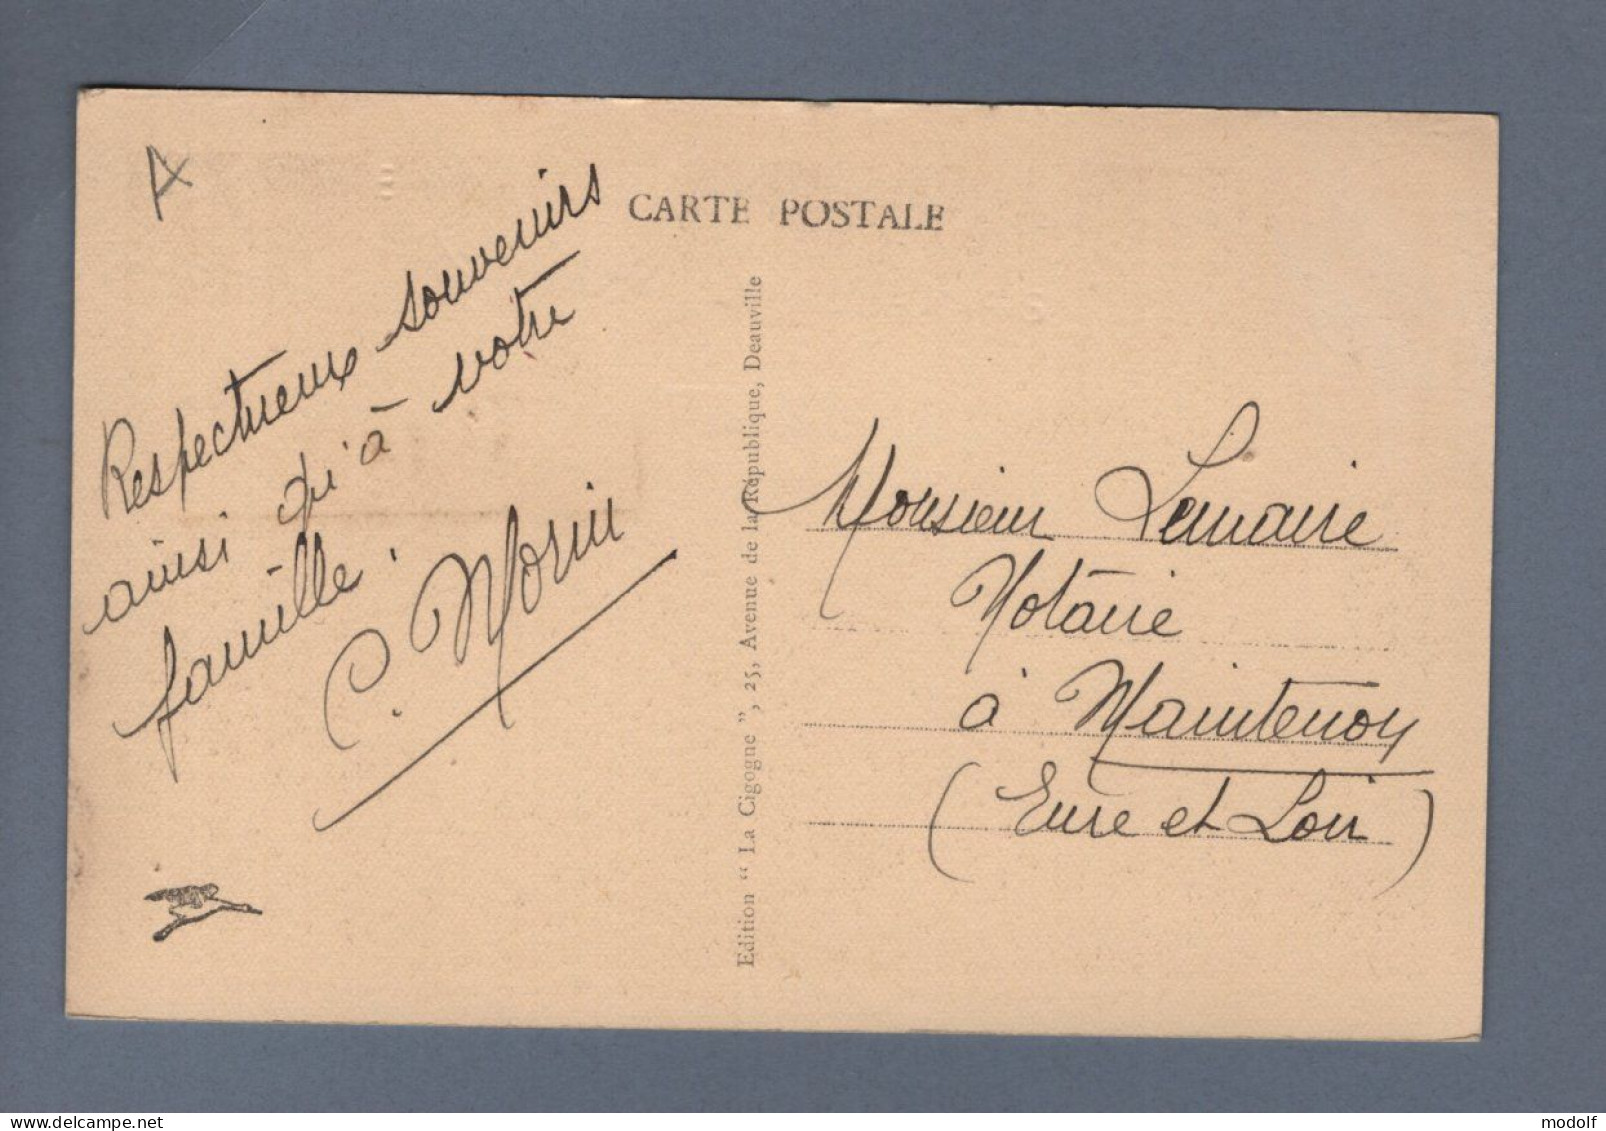 A
CARTE POSTALE
Respectueux souvenirs
ainsi qu'à votre
famille.
C. Morin
Edition “ La Cigogne ”, 25, Avenue de la République, Deauville
Monsieur Lemaire
Notaire
à Maintenon
(Eure et Loir)
modolf